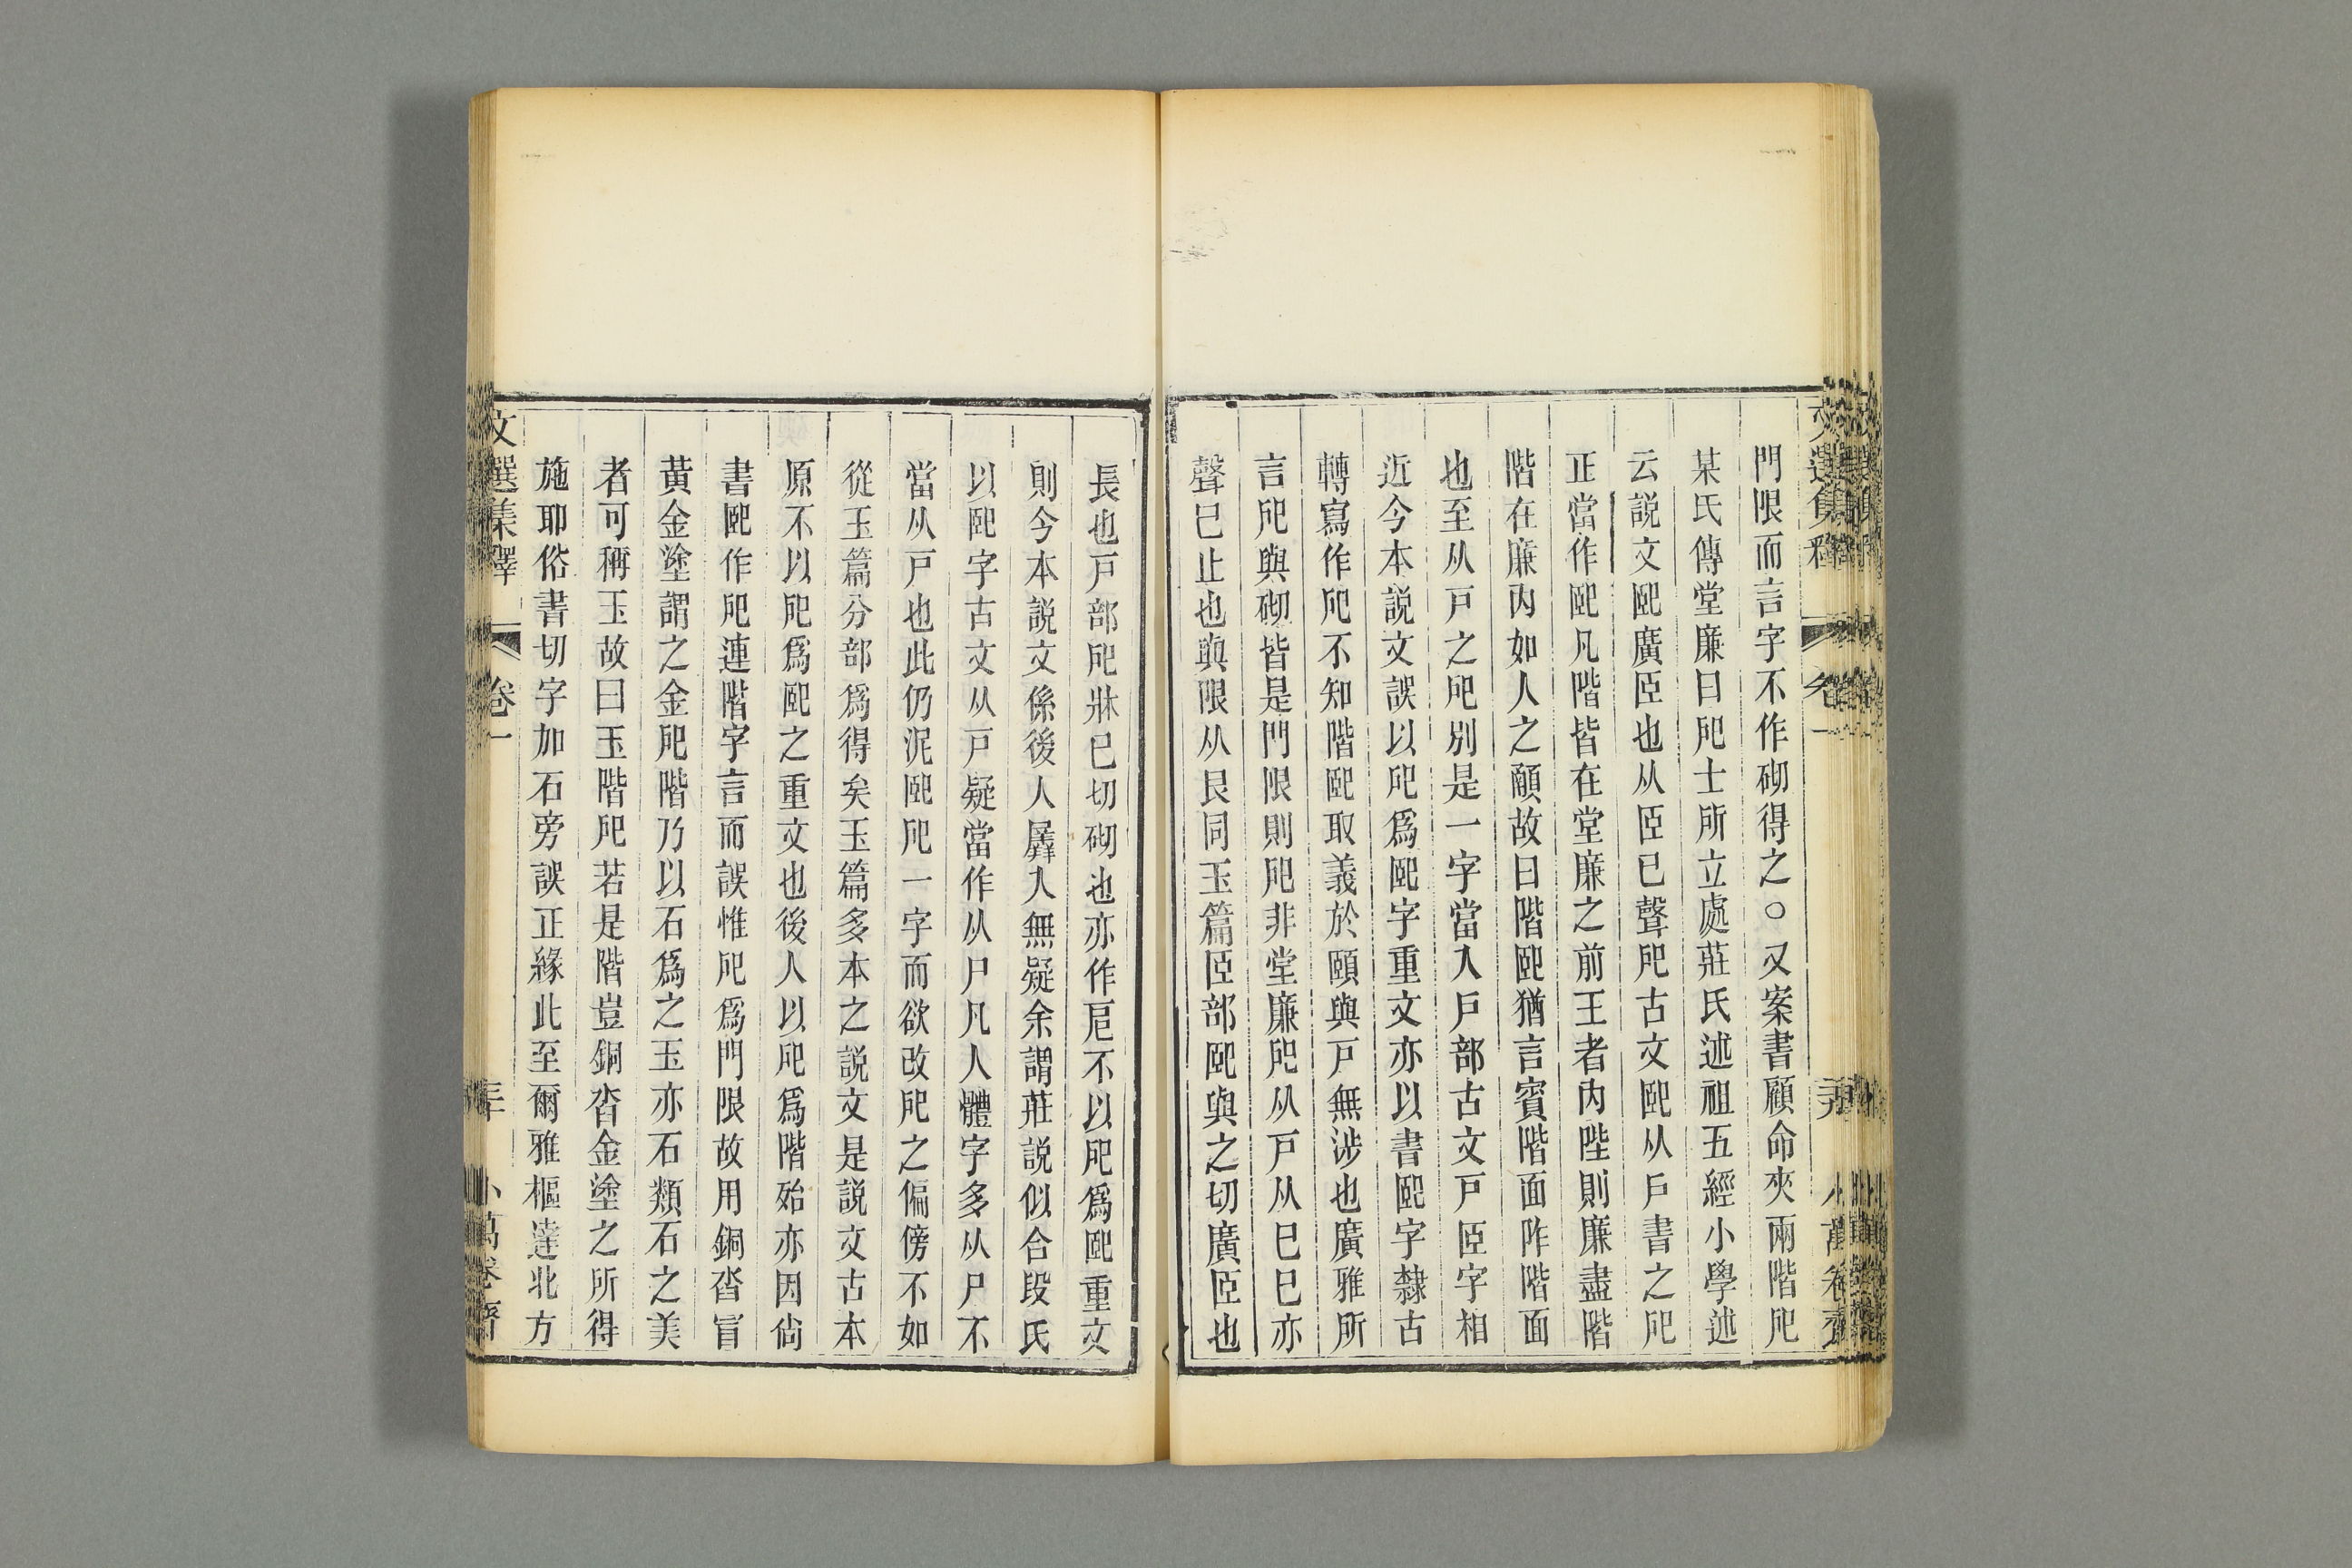 門限而言字不作砌得之○又案書顧命夾兩階戺
某氏傳堂廉曰戺士所立處莊氏述祖五經小學述
云說文巸廣𦣞也从𦣞巳聲戺古文巸从戶書之戺
正當作巸凡階皆在堂廉之前王者內陛則廉盡階
階在廉內如人之頤故曰階巸猶言賓階面阼階面
也至从戶之戺別是一字當入戶部古文戶𦣞字相
近今本說文誤以戺爲巸字重文亦以書巸字隸古
轉寫作戺不知階巸取義於頤與戶無涉也廣雅所
言戺與砌皆是門限則戺非堂廉戺从戶从巳巳亦
聲巳止也與限从艮同玉篇𦣞部巸與之切廣𦣞也
長也戶部戺牀巳切砌也亦作㞒不以戺爲巸重文
則今本說文係後人羼入無疑余謂莊說似合段氏
以巸字古文从戶疑當作从尸凡人體字多从尸不
當从戶也此仍泥巸戺一字而欲改戺之偏傍不如
從玉篇分部爲得矣玉篇多本之說文是說文古本
原不以戺爲巸之重文也後人以戺爲階殆亦因尙
書巸作戺連階字言而誤惟戺爲門限故用銅沓冒
黃金塗謂之金戺階乃以石爲之玉亦石類石之美
者可稱玉故曰玉階戺若是階豈銅沓金塗之所得
施耶俗書切字加石旁誤正緣此至爾雅樞達北方
文選集釋 卷一 三十 小萬卷齋